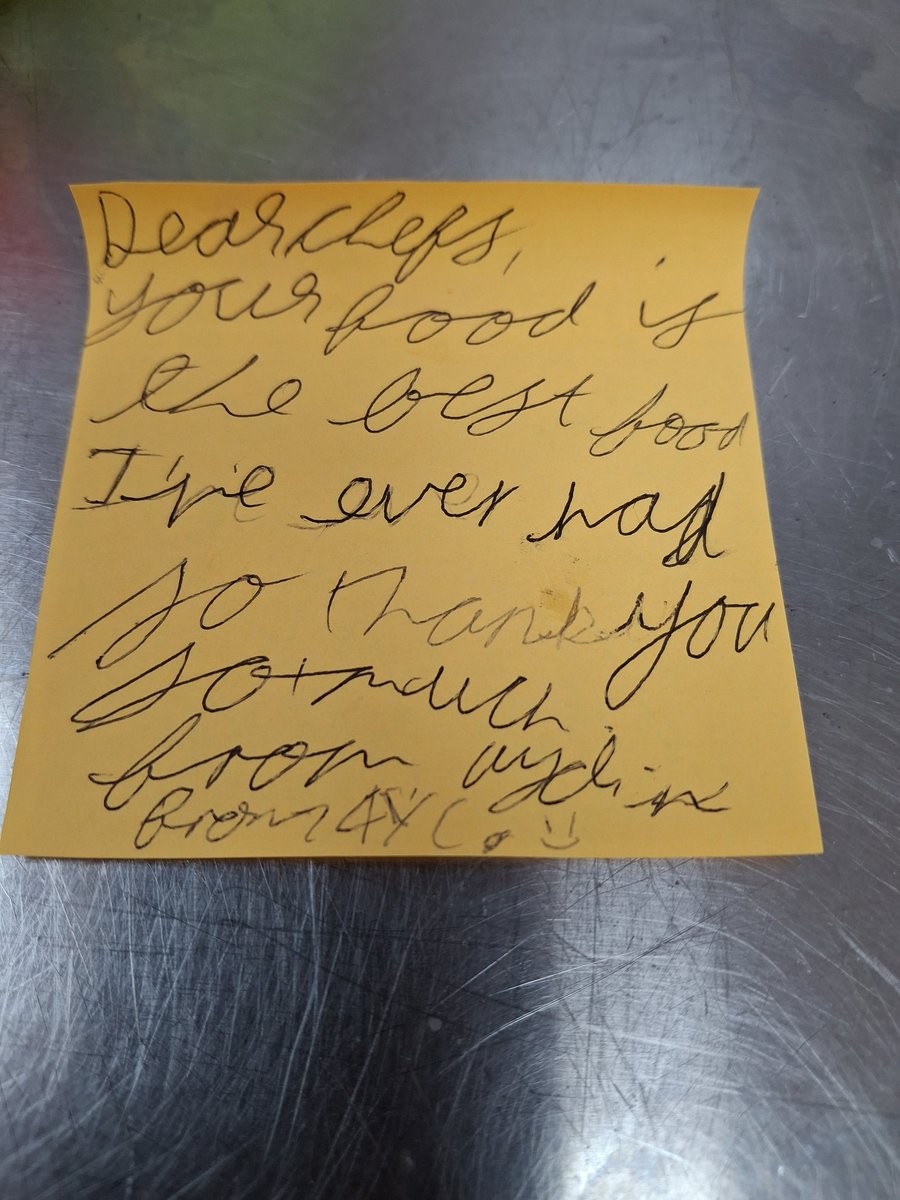 Dear chefs,
your food is
the best food
I've ever had
so thank you
so much
from aydin
From 4Y